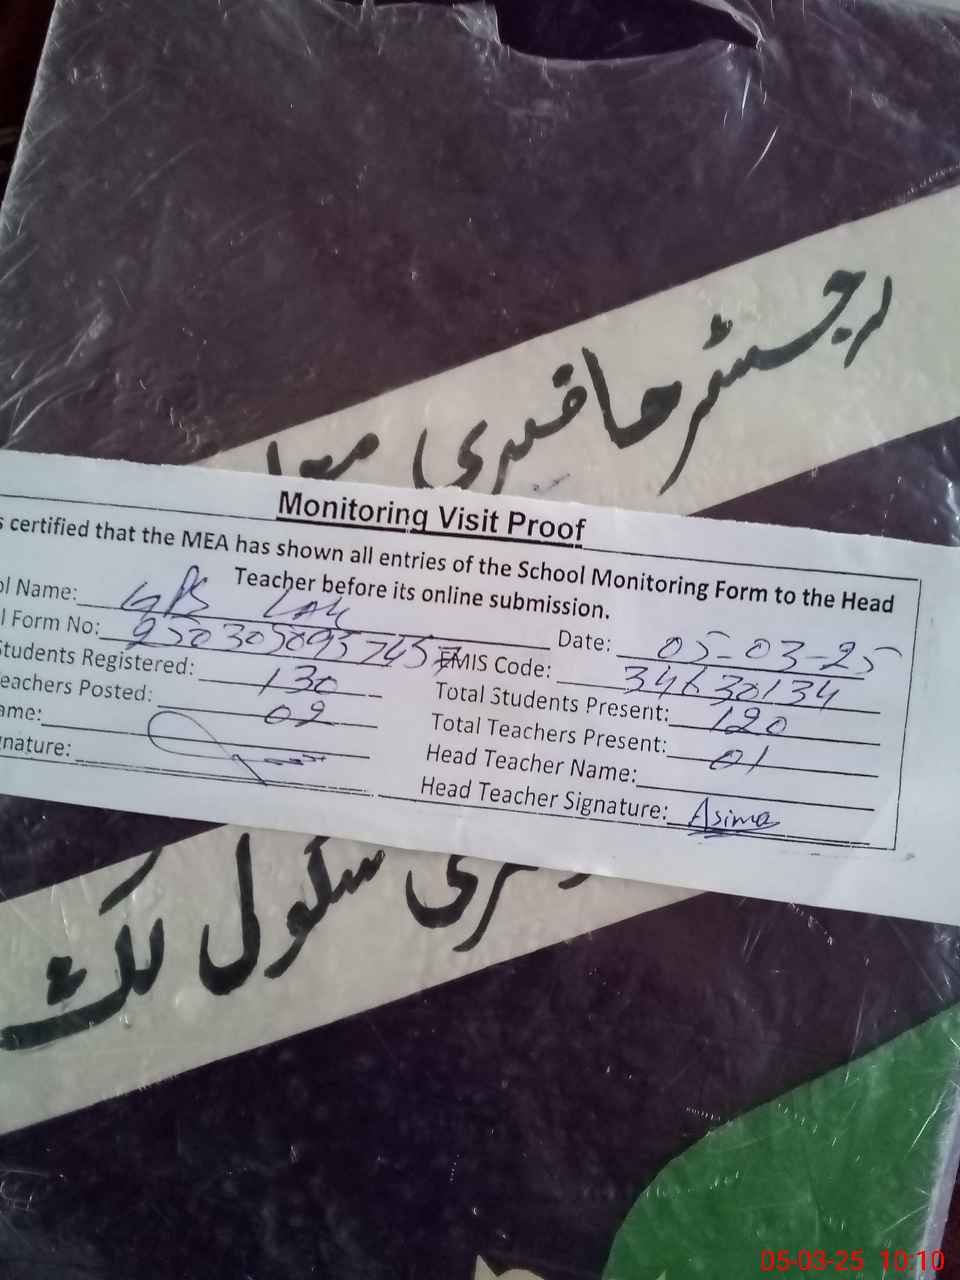 رجسٹر حاضری
Monitoring Visit Proof
s certified that the MEA has shown all entries of the School Monitoring Form to the Head
Teacher before its online submission.
ol Name: GPS LAK
l Form No: Date: 05-03-25
Students Registered: 130 EMIS Code: 34630134
eachers Posted: 02 Total Students Present: 120
ame: Total Teachers Present: 01
gnature: Head Teacher Name:
Head Teacher Signature: Asima
سکول لک
05-03-25 10:10